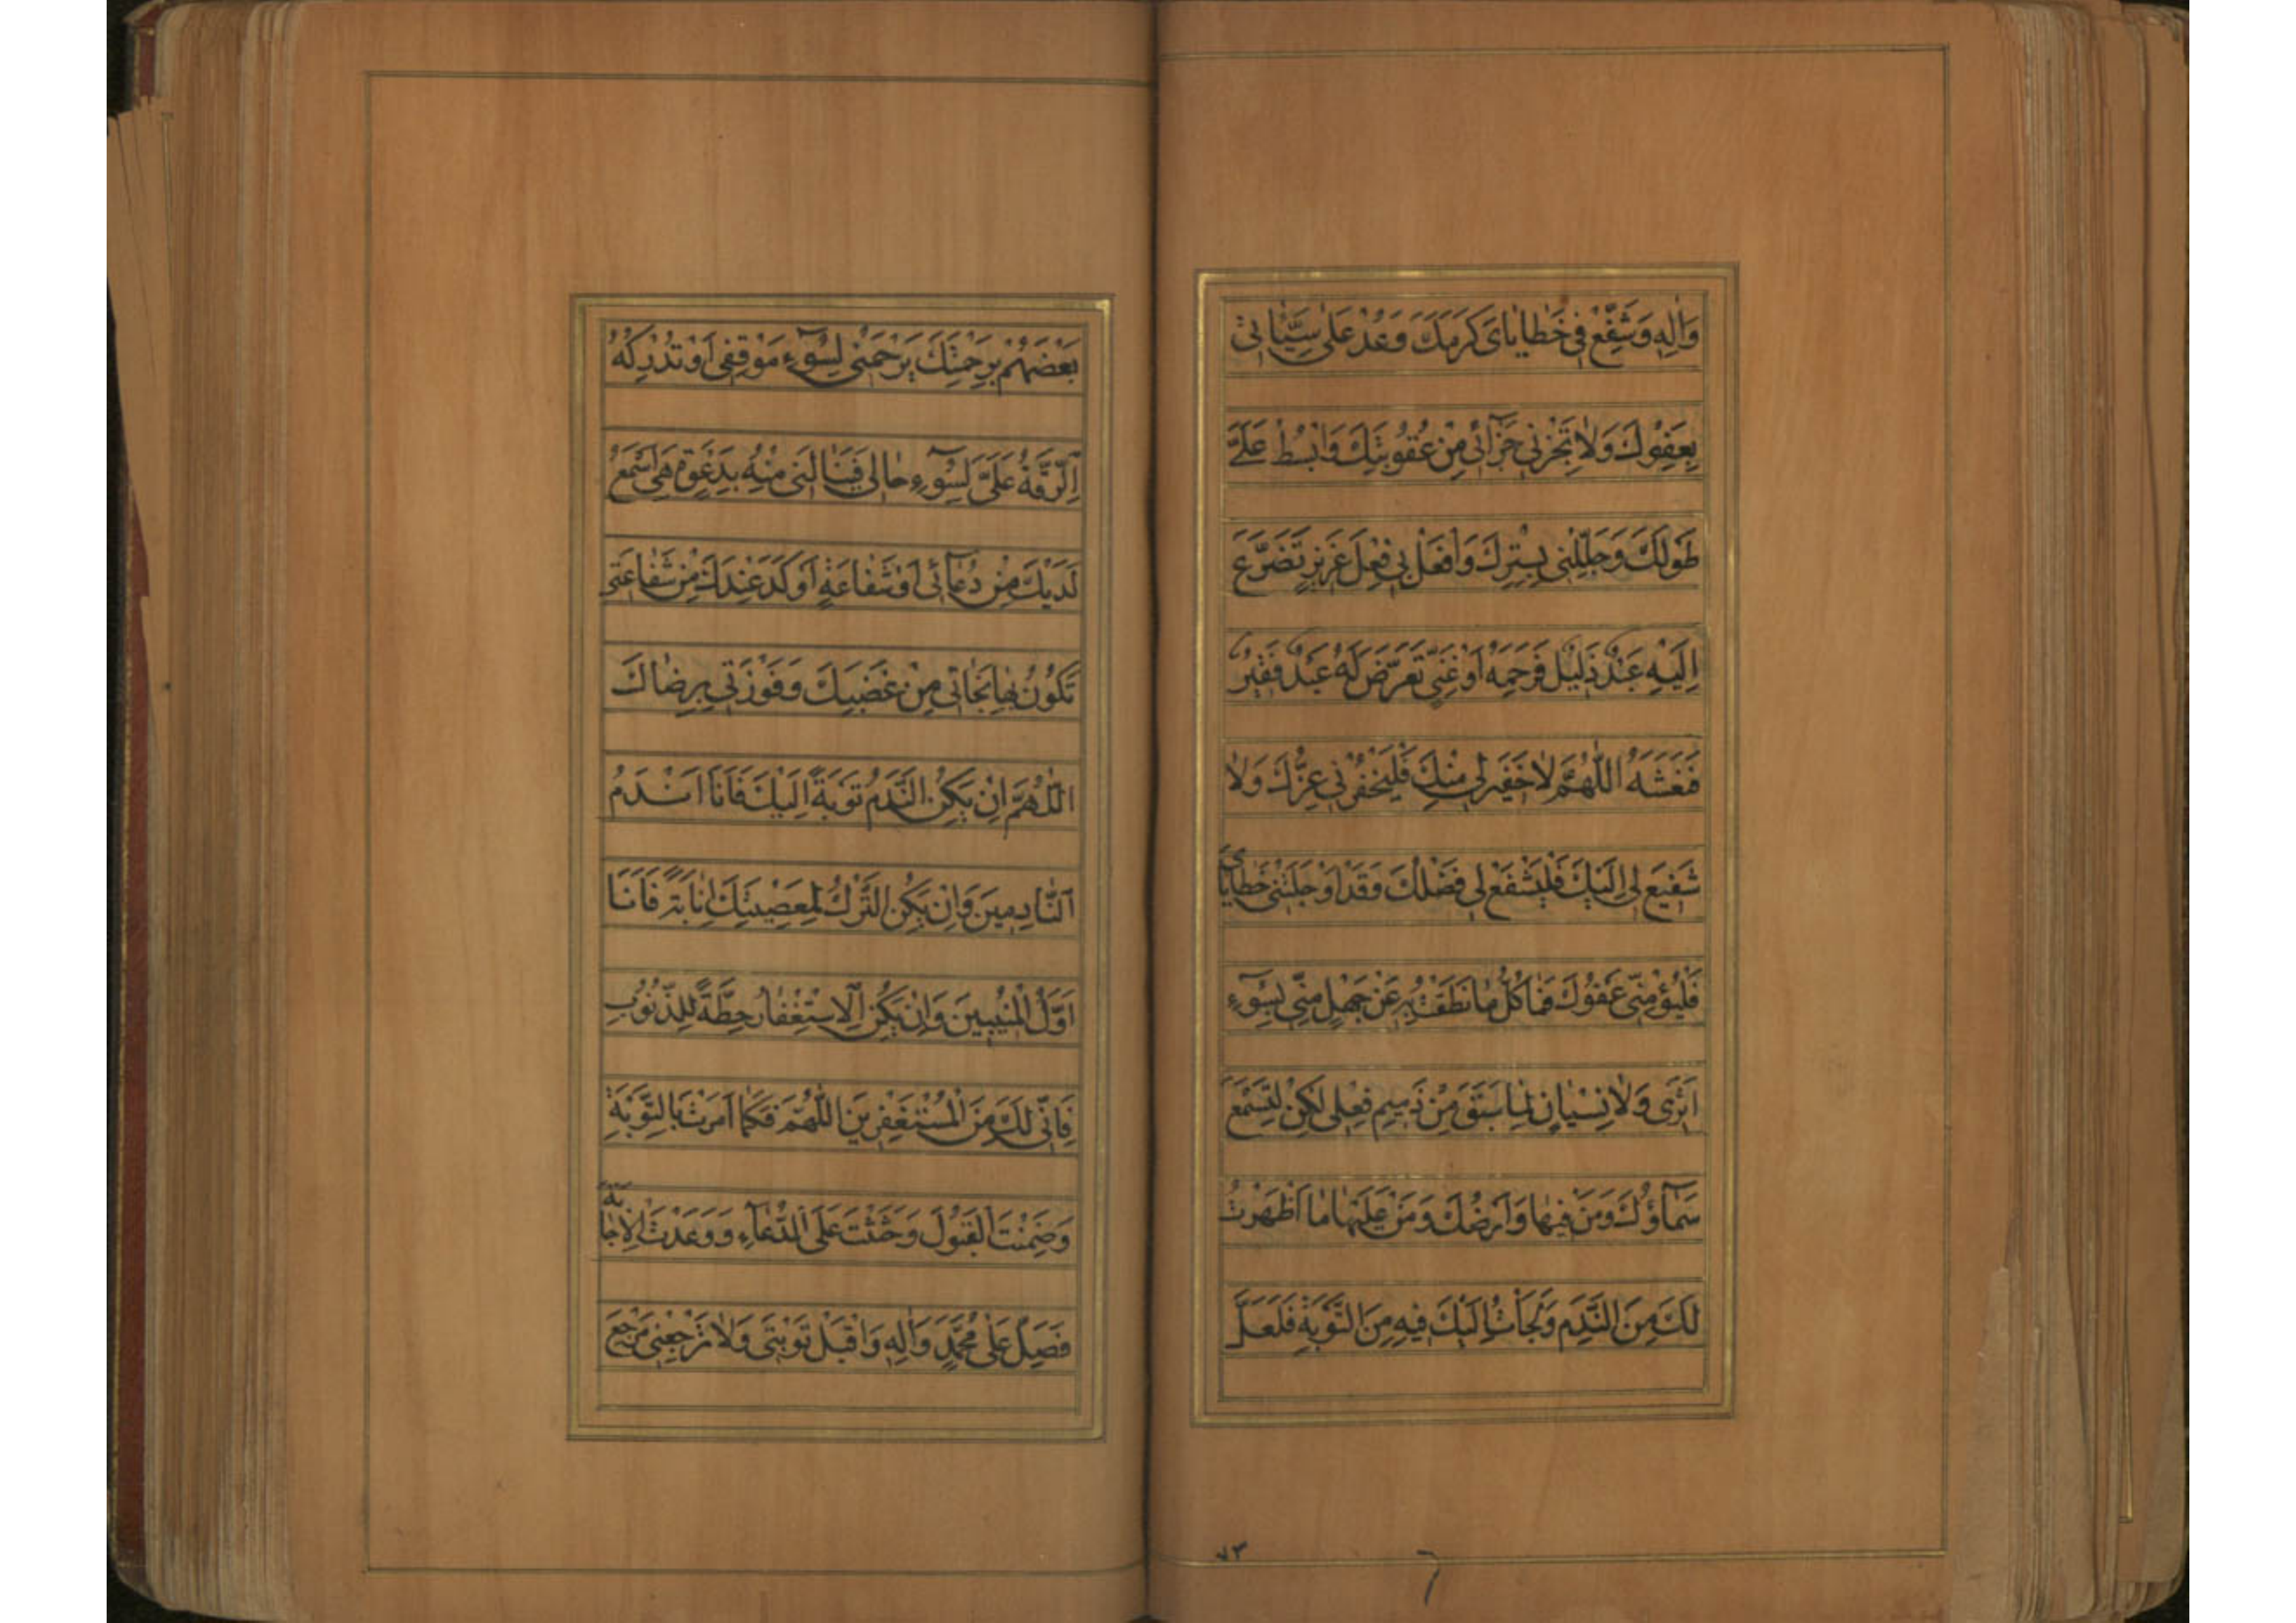 وَاٰلِهِ وَشَفِّعْ فِي خَطَايَايَ كَرَمَكَ وَعُدْ عَلٰى سَيِّئَاتِي
بِعَفْوِكَ وَلَا تَجْزِنِي جَزَآئِي مِنْ عُقُوبَتِكَ وَابْسُطْ عَلَيَّ
طَوْلَكَ وَجَلِّلْنِي بِسِتْرِكَ وَافْعَلْ بِي فِعْلَ عَزِيزٍ تَضَرَّعَ
اِلَيْهِ عَبْدٌ ذَلِيلٌ فَرَحِمَهُ اَوْ غَنِيٍّ تَعَرَّضَ لَهُ عَبْدٌ فَقِيرٌ
فَنَعَشَهُ اَللّٰهُمَّ لَا خَفِيرَ لِي مِنْكَ فَلْيَخْفُرْنِي عِزُّكَ وَلَا
شَفِيعَ لِي اِلَيْكَ فَلْيَشْفَعْ لِي فَضْلُكَ وَقَدْ اَوْجَلَتْنِي خَطَايَايَ
فَلْيُؤْمِنِّي عَفْوُكَ فَمَا كُلُّ مَا نَطَقْتُ بِهِ عَنْ جَهْلٍ مِنِّي بِسُوٓءِ
اَثَرِي وَلَا نِسْيَانٍ لِمَا سَبَقَ مِنْ ذَمِيمِ فِعْلِي لٰكِنْ لِتَسْمَعَ
سَمَآؤُكَ وَمَنْ فِيهَا وَاَرْضُكَ وَمَنْ عَلَيْهَا مَا اَظْهَرْتُ
لَكَ مِنَ النَّدَمِ وَلَجَأْتُ اِلَيْكَ فِيهِ مِنَ التَّوْبَةِ فَلَعَلَّ
٧٣
بَعْضَهُمْ بِرَحْمَتِكَ يَرْحَمُنِي لِسُوٓءِ مَوْقِفِي اَوْ تُدْرِكُهُ
اَلرِّقَّةُ عَلَيَّ لِسُوٓءِ حَالِي فَيَنَالَنِي مِنْهُ بِدَعْوَةٍ هِيَ اَسْمَعُ
لَدَيْكَ مِنْ دُعَآئِي اَوْ شَفَاعَةٍ اَوْكَدُ عِنْدَكَ مِنْ شَفَاعَتِي
تَكُونُ بِهَا نَجَاتِي مِنْ غَضَبِكَ وَفَوْزَتِي بِرِضَاكَ
اَللّٰهُمَّ اِنْ يَكُنِ النَّدَمُ تَوْبَةً اِلَيْكَ فَاَنَا اَنْدَمُ
اَلنَّادِمِينَ وَاِنْ يَكُنِ التَّرْكُ لِمَعْصِيَتِكَ اِنَابَةً فَاَنَا
اَوَّلُ الْمُنِيبِينَ وَاِنْ يَكُنِ الْاِسْتِغْفَارُ حِطَّةً لِلذُّنُوبِ
فَاِنِّي لَكَ مِنَ الْمُسْتَغْفِرِينَ اَللّٰهُمَّ فَكَمَا اَمَرْتَ بِالتَّوْبَةِ
وَضَمِنْتَ الْقَبُولَ وَحَثَثْتَ عَلَى الدُّعَآءِ وَوَعَدْتَ الْاِجَابَةَ
فَصَلِّ عَلٰى مُحَمَّدٍ وَاٰلِهِ وَاقْبَلْ تَوْبَتِي وَلَا تَرْجِعْنِي مَرْجِعَ